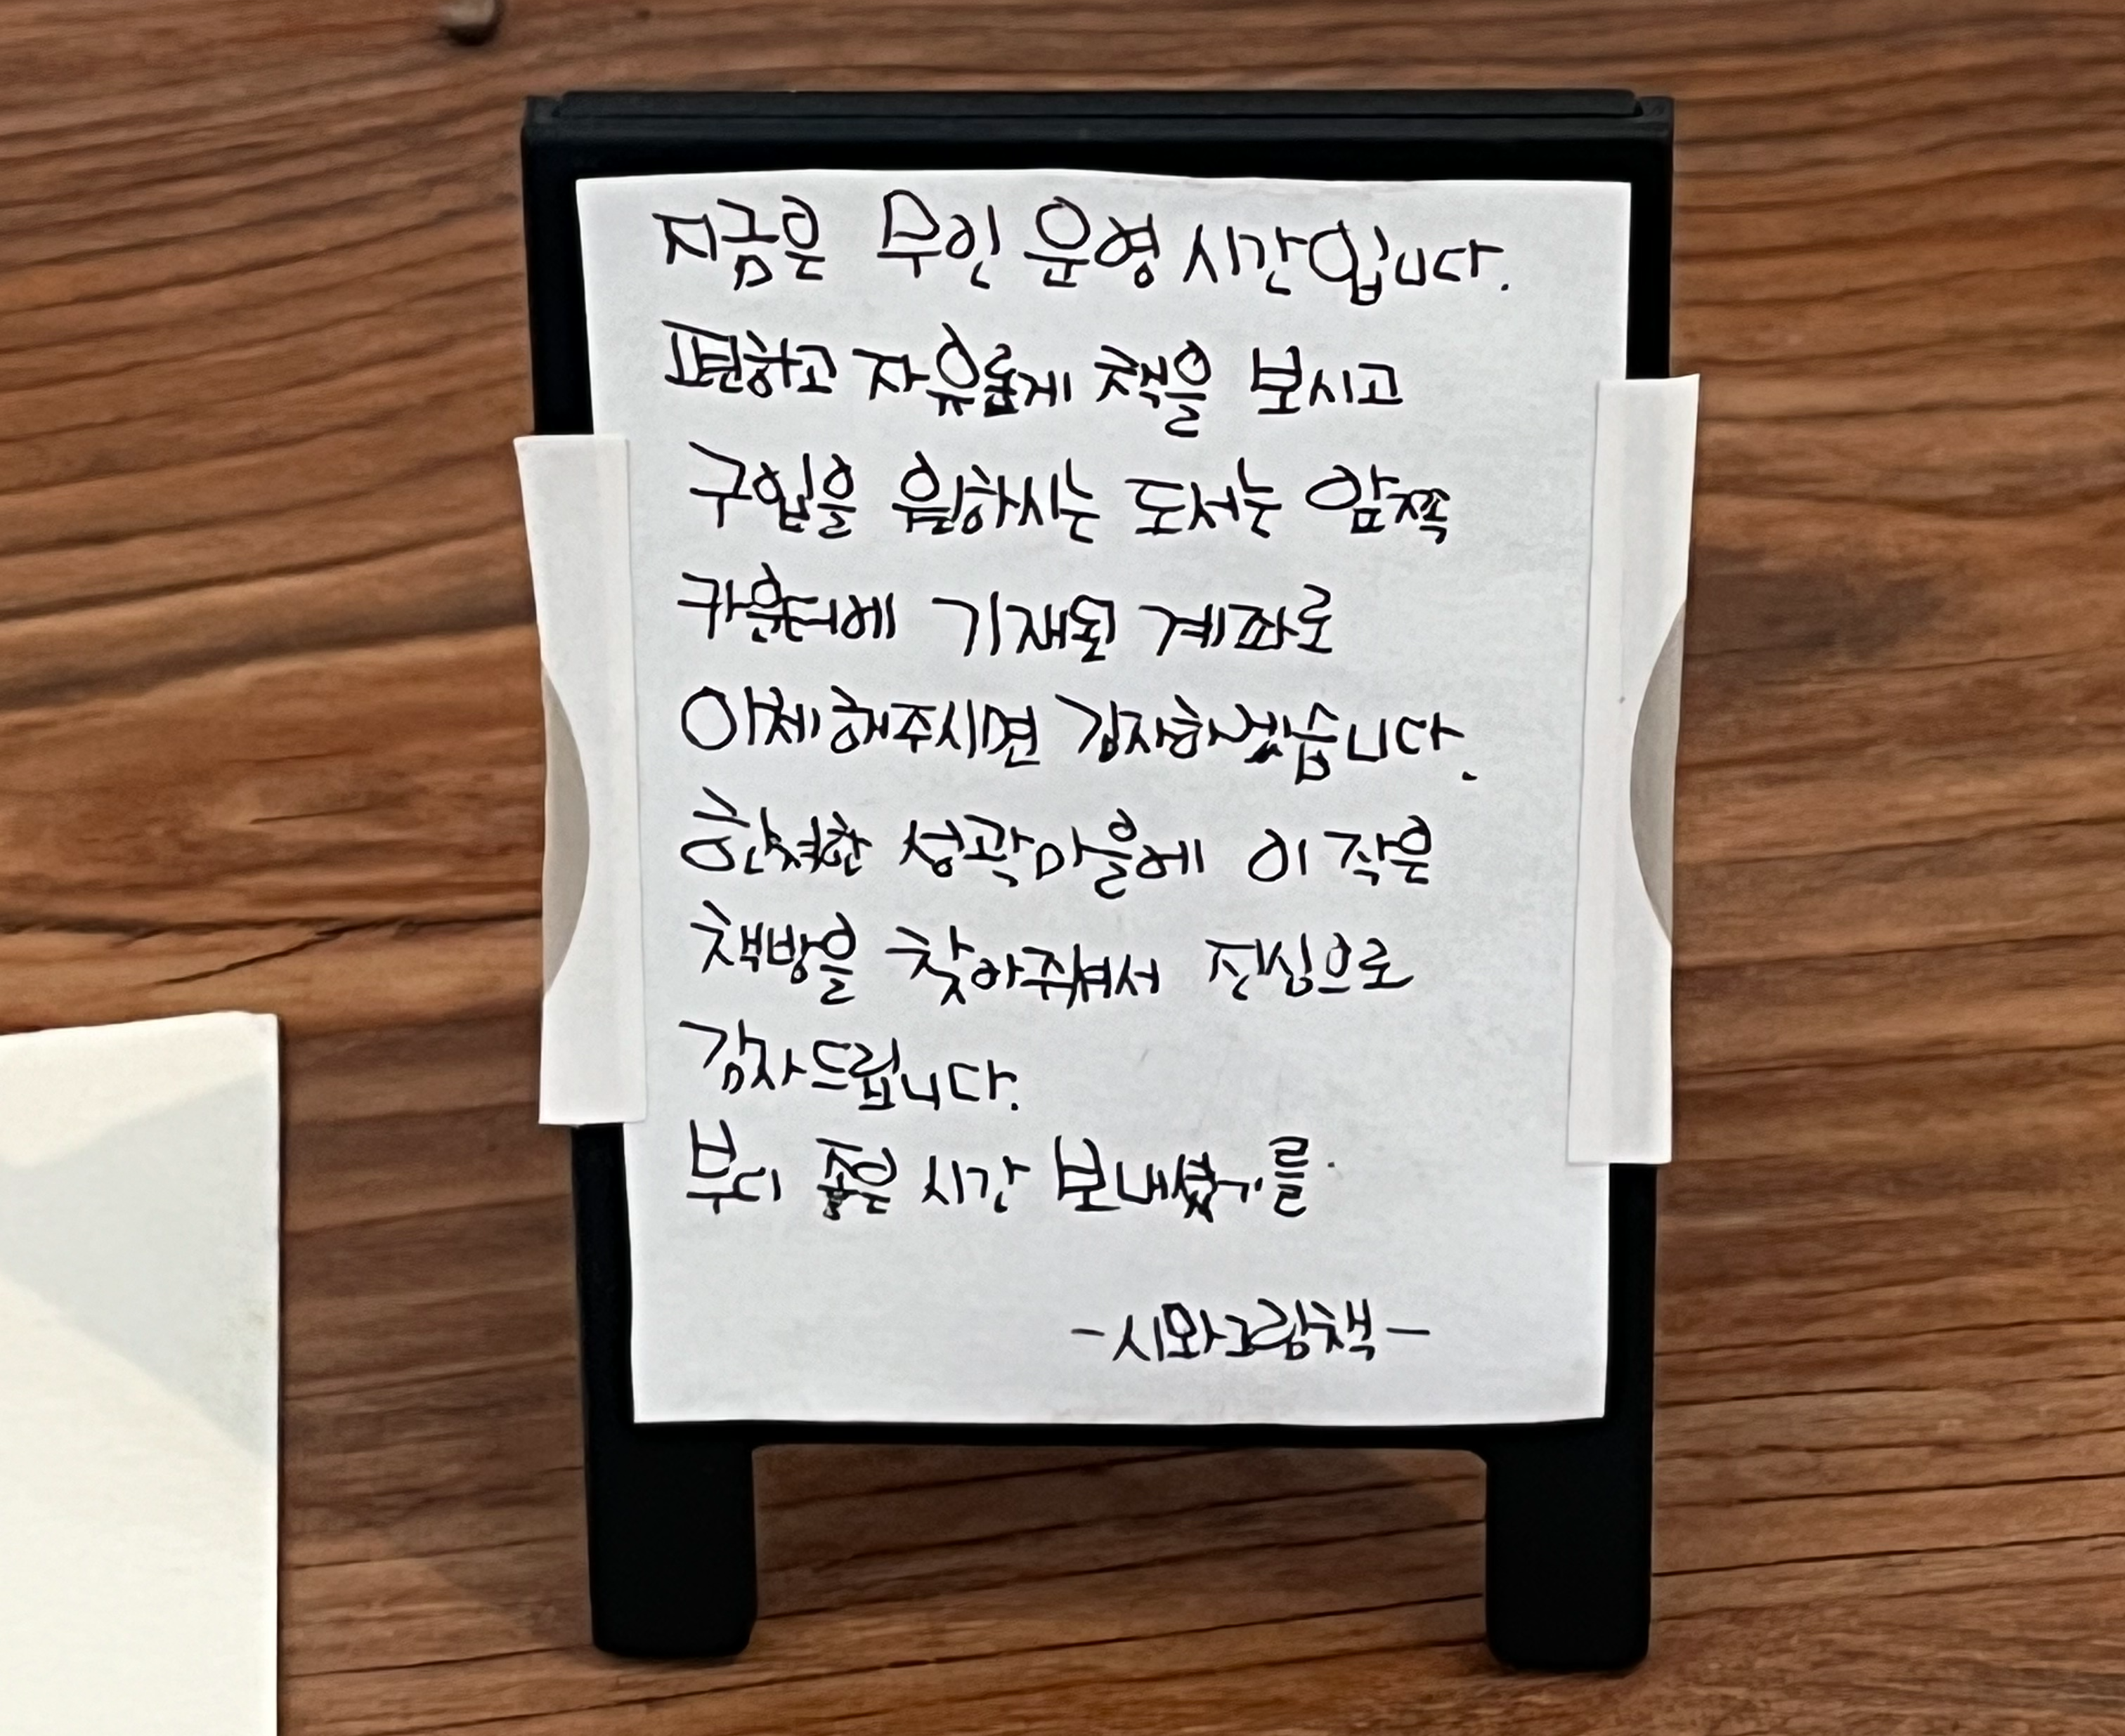 지금은 무인 운영 시간입니다.
편하고 자유롭게 책을 보시고
구입을 원하시는 도서는 앞쪽
카운터에 기재된 계좌로
이체해주시면 감사하겠습니다.
한적한 성곽마을에 이 작은
책방을 찾아주셔서 진심으로
감사드립니다.
부디 좋은 시간 보내셨기를
-시와그림책-